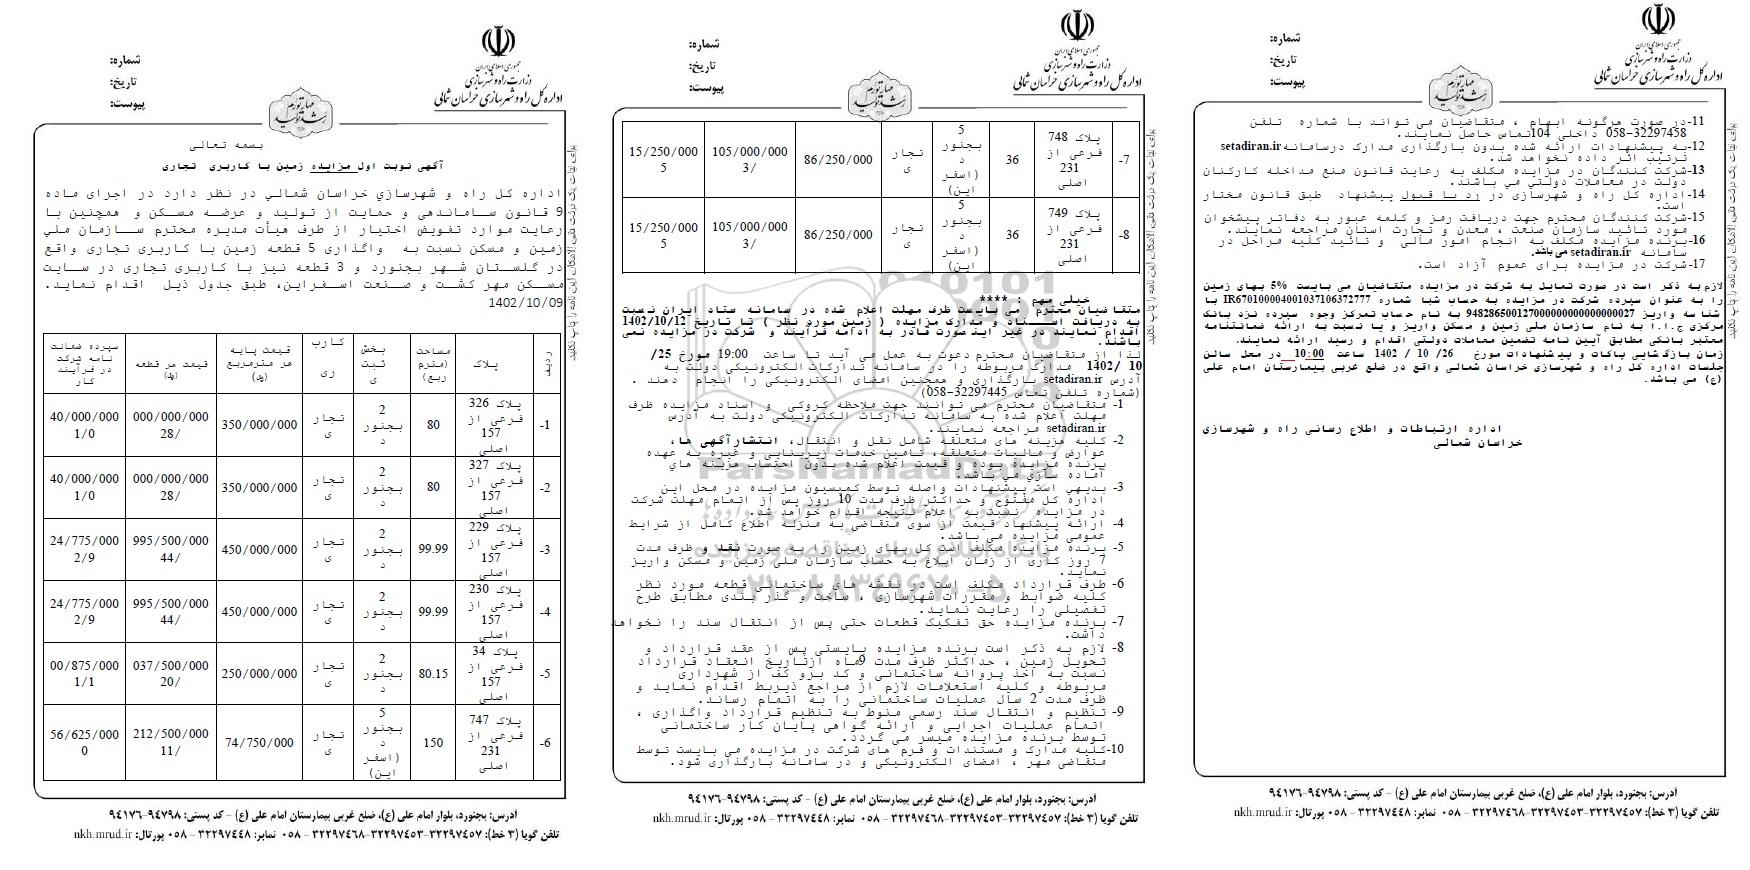 جمهوری اسلامی ایران
وزارت راه و شهرسازی
اداره کل راه و شهرسازی خراسان شمالی
شماره:
تاریخ:
پیوست:
مهار تورم
رشد تولید
بسمه تعالی
آگهی نوبت اول مزایده زمین با کاربری تجاری
اداره کل راه و شهرسازي خراسان شمالي در نظر دارد در اجرای ماده
9 قانون ساماندهی و حمایت از تولید و عرضه مسکن و همچنین با
رعایت موارد تفویض اختیار از طرف هیأت مدیره محترم سازمان ملي
زمین و مسکن نسبت به واگذاری 5 قطعه زمین با کاربری تجاری واقع
در گلستان شهر بجنورد و 3 قطعه نیز با کاربری تجاری در سایت
مسکن مهر کشت و صنعت اسفراین، طبق جدول ذیل اقدام نماید.
1402/10/09
ردیف | پلاک | مساحت (مترم ربع) | بخش ثبت ی | کارب ری | قیمت پایه هر مترمربع (ریال) | قیمت هر قطعه (ریال) | سپرده ضمانت نامه شرکت در فرآیند کار
1- | پلاک 326 فرعی از 157 اصلی | 80 | 2 بجنور د | تجار ی | 350/000/000 | 000/000/000 28/ | 40/000/000 1/0
2- | پلاک 327 فرعی از 157 اصلی | 80 | 2 بجنور د | تجار ی | 350/000/000 | 000/000/000 28/ | 40/000/000 1/0
3- | پلاک 229 فرعی از 157 اصلی | 99.99 | 2 بجنور د | تجار ی | 450/000/000 | 995/500/000 44/ | 24/775/000 2/9
4- | پلاک 230 فرعی از 157 اصلی | 99.99 | 2 بجنور د | تجار ی | 450/000/000 | 995/500/000 44/ | 24/775/000 2/9
5- | پلاک 34 فرعی از 157 اصلی | 80.15 | 2 بجنور د | تجار ی | 250/000/000 | 037/500/000 20/ | 00/875/000 1/1
6- | پلاک 747 فرعی از 231 اصلی | 150 | 5 بجنور د (اسفر این) | تجار ی | 74/750/000 | 212/500/000 11/ | 56/625/000 0
آدرس: بجنورد، بلوار امام علی (ع)، ضلع غربی بیمارستان امام علی (ع) - کد پستی: ۹۴۷۹۸-۹۴۱۷۶
تلفن گویا (۳ خط): ۳۲۲۹۷۴۵۷-۳۲۲۹۷۴۵۳-۳۲۲۹۷۴۶۸ - ۰۵۸ نمابر: ۳۲۲۹۷۴۴۸ - ۰۵۸ پورتال: nkh.mrud.ir
جمهوری اسلامی ایران
وزارت راه و شهرسازی
اداره کل راه و شهرسازی خراسان شمالی
شماره:
تاریخ:
پیوست:
مهار تورم
رشد تولید
7- | پلاک 748 فرعی از 231 اصلی | 36 | 5 بجنور د (اسفر این) | تجار ی | 86/250/000 | 105/000/000 3/ | 15/250/000 5
8- | پلاک 749 فرعی از 231 اصلی | 36 | 5 بجنور د (اسفر این) | تجار ی | 86/250/000 | 105/000/000 3/ | 15/250/000 5
خیلی مهم : ****
متقاضیان محترم می بایست ظرف مهلت اعلام شده در سامانه ستاد ایران نسبت
به دریافت اسناد و مدارک مزایده ( زمین مورد نظر ) تا تاریخ 1402/10/12
اقدام نمایند در غیر اینصورت قادر به ادامه فرآیند و شرکت در مزایده نمی
باشند.
لذا از متقاضیان محترم دعوت به عمل می آید تا ساعت 19:00 مورخ 25/
10 /1402 مدارک مربوطه را در سامانه تدارکات الکترونیکی دولت به
آدرس setadiran.ir بارگذاری و همچنین امضای الکترونیکی را انجام دهند .
(شماره تلفن تماس 32297445-058)
1- متقاضیان محترم می توانند جهت ملاحظه کروکی و اسناد مزایده ظرف
مهلت اعلام شده به سامانه تدارکات الکترونیکی دولت به آدرس
setadiran.ir مراجعه نمایند.
2- کلیه هزینه های متعلقه شامل نقل و انتقال، انتشارآگهی ها،
عوارض و مالیات متعلقه، تامین خدمات زیربنایی و غیره به عهده
برنده مزایده بوده و قیمت اعلام شده بدون احتساب هزینه هاي
آماده سازي مي باشد.
3- بدیهي است پیشنهادات واصله توسط کمیسیون مزایده در محل این
اداره کل مفتوح و حداکثر ظرف مدت 10 روز پس از اتمام مهلت شرکت
در مزایده نسبت به اعلام نتیجه اقدام خواهد شد.
4- ارائه پیشنهاد قیمت از سوی متقاضی به منزله اطلاع کامل از شرایط
عمومی مزایده می باشد.
5- برنده مزایده مکلف است کل بهای زمین را به صورت نقد و ظرف مدت
7 روز کاری از زمان ابلاغ به حساب سازمان ملی زمین و مسکن واریز
نماید.
6- طرف قرارداد مکلف است در نقشه هاي ساختماني قطعه مورد نظر
کلیه ضوابط و مقررات شهرسازی ، ساخت و گذر بندی مطابق طرح
تفصیلی را رعایت نماید.
7- برنده مزایده حق تفکیک قطعات حتی پس از انتقال سند را نخواهد
داشت.
8- لازم به ذکر است برنده مزایده بایستی پس از عقد قرارداد و
تحویل زمین ، حداکثر ظرف مدت 9ماه ازتاریخ انعقاد قرارداد
نسبت به اخذ پروانه ساختمانی و کد برو کف از شهرداری
مربوطه و کلیه استعلامات لازم از مراجع ذیربط اقدام نماید و
ظرف مدت 2 سال عملیات ساختمانی را به اتمام رساند.
9- تنظیم و انتقال سند رسمی منوط به تنظیم قرارداد واگذاری ،
اتمام عملیات اجرایی و ارائه گواهی پایان کار ساختمانی
توسط برنده مزایده میسر می گردد.
10-کلیه مدارک و مستندات و فرم های شرکت در مزایده می بایست توسط
متقاضی مهر ، امضای الکترونیکی و در سامانه بارگذاری شود.
ParsNamadData
پایگاه اطلاع رسانی مناقصه و مزایده
۰۲۱-۸۸۳۴۹۶۷۰-۵
آدرس: بجنورد، بلوار امام علی (ع)، ضلع غربی بیمارستان امام علی (ع) - کد پستی: ۹۴۷۹۸-۹۴۱۷۶
تلفن گویا (۳ خط): ۳۲۲۹۷۴۵۷-۳۲۲۹۷۴۵۳-۳۲۲۹۷۴۶۸ - ۰۵۸ نمابر: ۳۲۲۹۷۴۴۸ - ۰۵۸ پورتال: nkh.mrud.ir
جمهوری اسلامی ایران
وزارت راه و شهرسازی
اداره کل راه و شهرسازی خراسان شمالی
شماره:
تاریخ:
پیوست:
مهار تورم
رشد تولید
11-در صورت هرگونه ابهام ، متقاضیان می تواند با شماره تلفن
32297458-058 داخلی 104تماس حاصل نمایند.
12-به پیشنهادات ارائه شده بدون بارگذاری مدارک درسامانه setadiran.ir
ترتیب اثر داده نخواهد شد.
13-شرکت کنندگان در مزایده مکلف به رعایت قانون منع مداخله کارکنان
دولت در معاملات دولتي مي باشند.
14-اداره کل راه و شهرسازی در رد یا قبول پیشنهاد طبق قانون مختار
است.
15-شرکت کنندگان محترم جهت دریافت رمز و کلمه عبور به دفاتر پیشخوان
مورد تائید سازمان صنعت ، معدن و تجارت استان مراجعه نمایند.
16-برنده مزایده مکلف به انجام امور مالی و تائید کلیه مراحل در
سامانه setadiran.ir می باشد.
17-شرکت در مزایده برای عموم آزاد است.
لازم به ذکر است در صورت تمایل به شرکت در مزایده متقاضیان می بایست 5% بهای زمین
را به عنوان سپرده شرکت در مزایده به حساب شبا شماره IR670100004001037106372777 با
شناسه واریز 948286500127000000000000000027 به نام حساب تمرکز وجوه سپرده نزد بانک
مرکزی ج.ا.ا به نام سازمان ملی زمین و مسکن واریز و یا نسبت به ارائه ضمانتنامه
معتبر بانکی مطابق آیین نامه تضمین معاملات دولتی اقدام و رسید ارائه نمایند.
زمان بازگشایی پاکات و پیشنهادات مورخ 26/ 10 / 1402 ساعت 10:00 در محل سالن
جلسات اداره کل راه و شهرسازی خراسان شمالی واقع در ضلع غربی بیمارستان امام علی
(ع) می باشد.
اداره ارتباطات و اطلاع رسانی راه و شهرسازی
خراسان شمالی
آدرس: بجنورد، بلوار امام علی (ع)، ضلع غربی بیمارستان امام علی (ع) - کد پستی: ۹۴۷۹۸-۹۴۱۷۶
تلفن گویا (۳ خط): ۳۲۲۹۷۴۵۷-۳۲۲۹۷۴۵۳-۳۲۲۹۷۴۶۸ - ۰۵۸ نمابر: ۳۲۲۹۷۴۴۸ - ۰۵۸ پورتال: nkh.mrud.ir